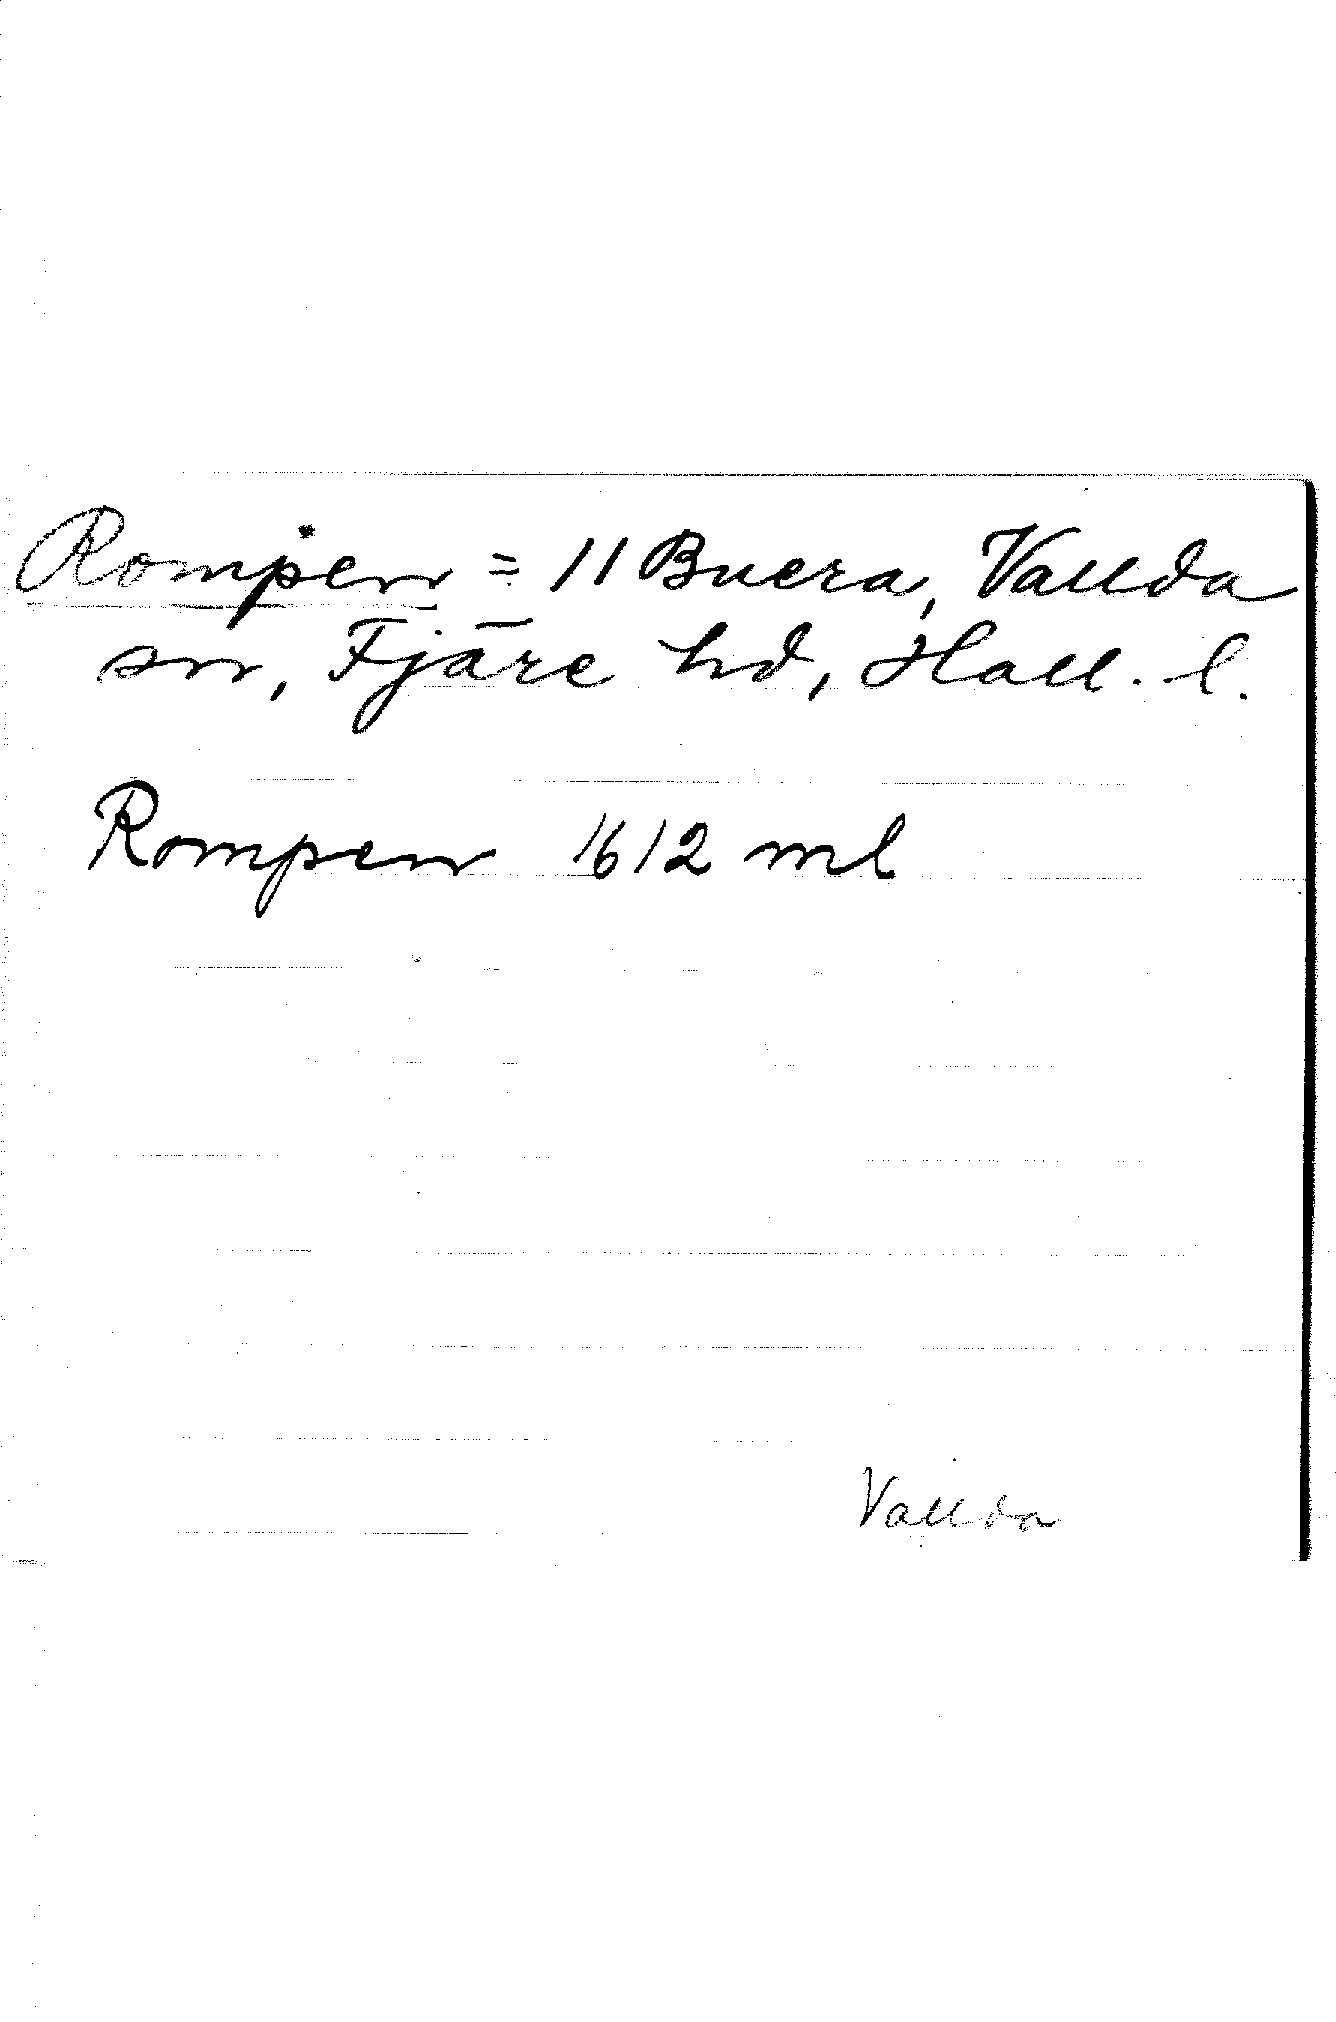 Rompen = 11 Buera, Vallda
sn, Fjäre hd, Hall. l.
Rompen 1612 ml
Vallda